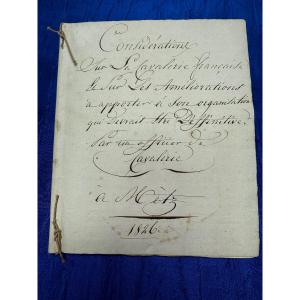 Considérations
Sur La Cavalerie française
Et Sur Les Améliorations
à apporter à Son organisation
qui devrait être Déffinitive.
Par un officier de
Cavalerie
à Metz
1826